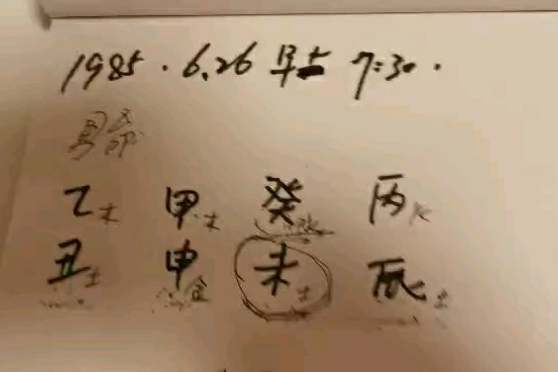 1985.6.26 早上 7:30.
男命
乙木 甲木 癸水 丙火
丑土 申金 未土 辰土